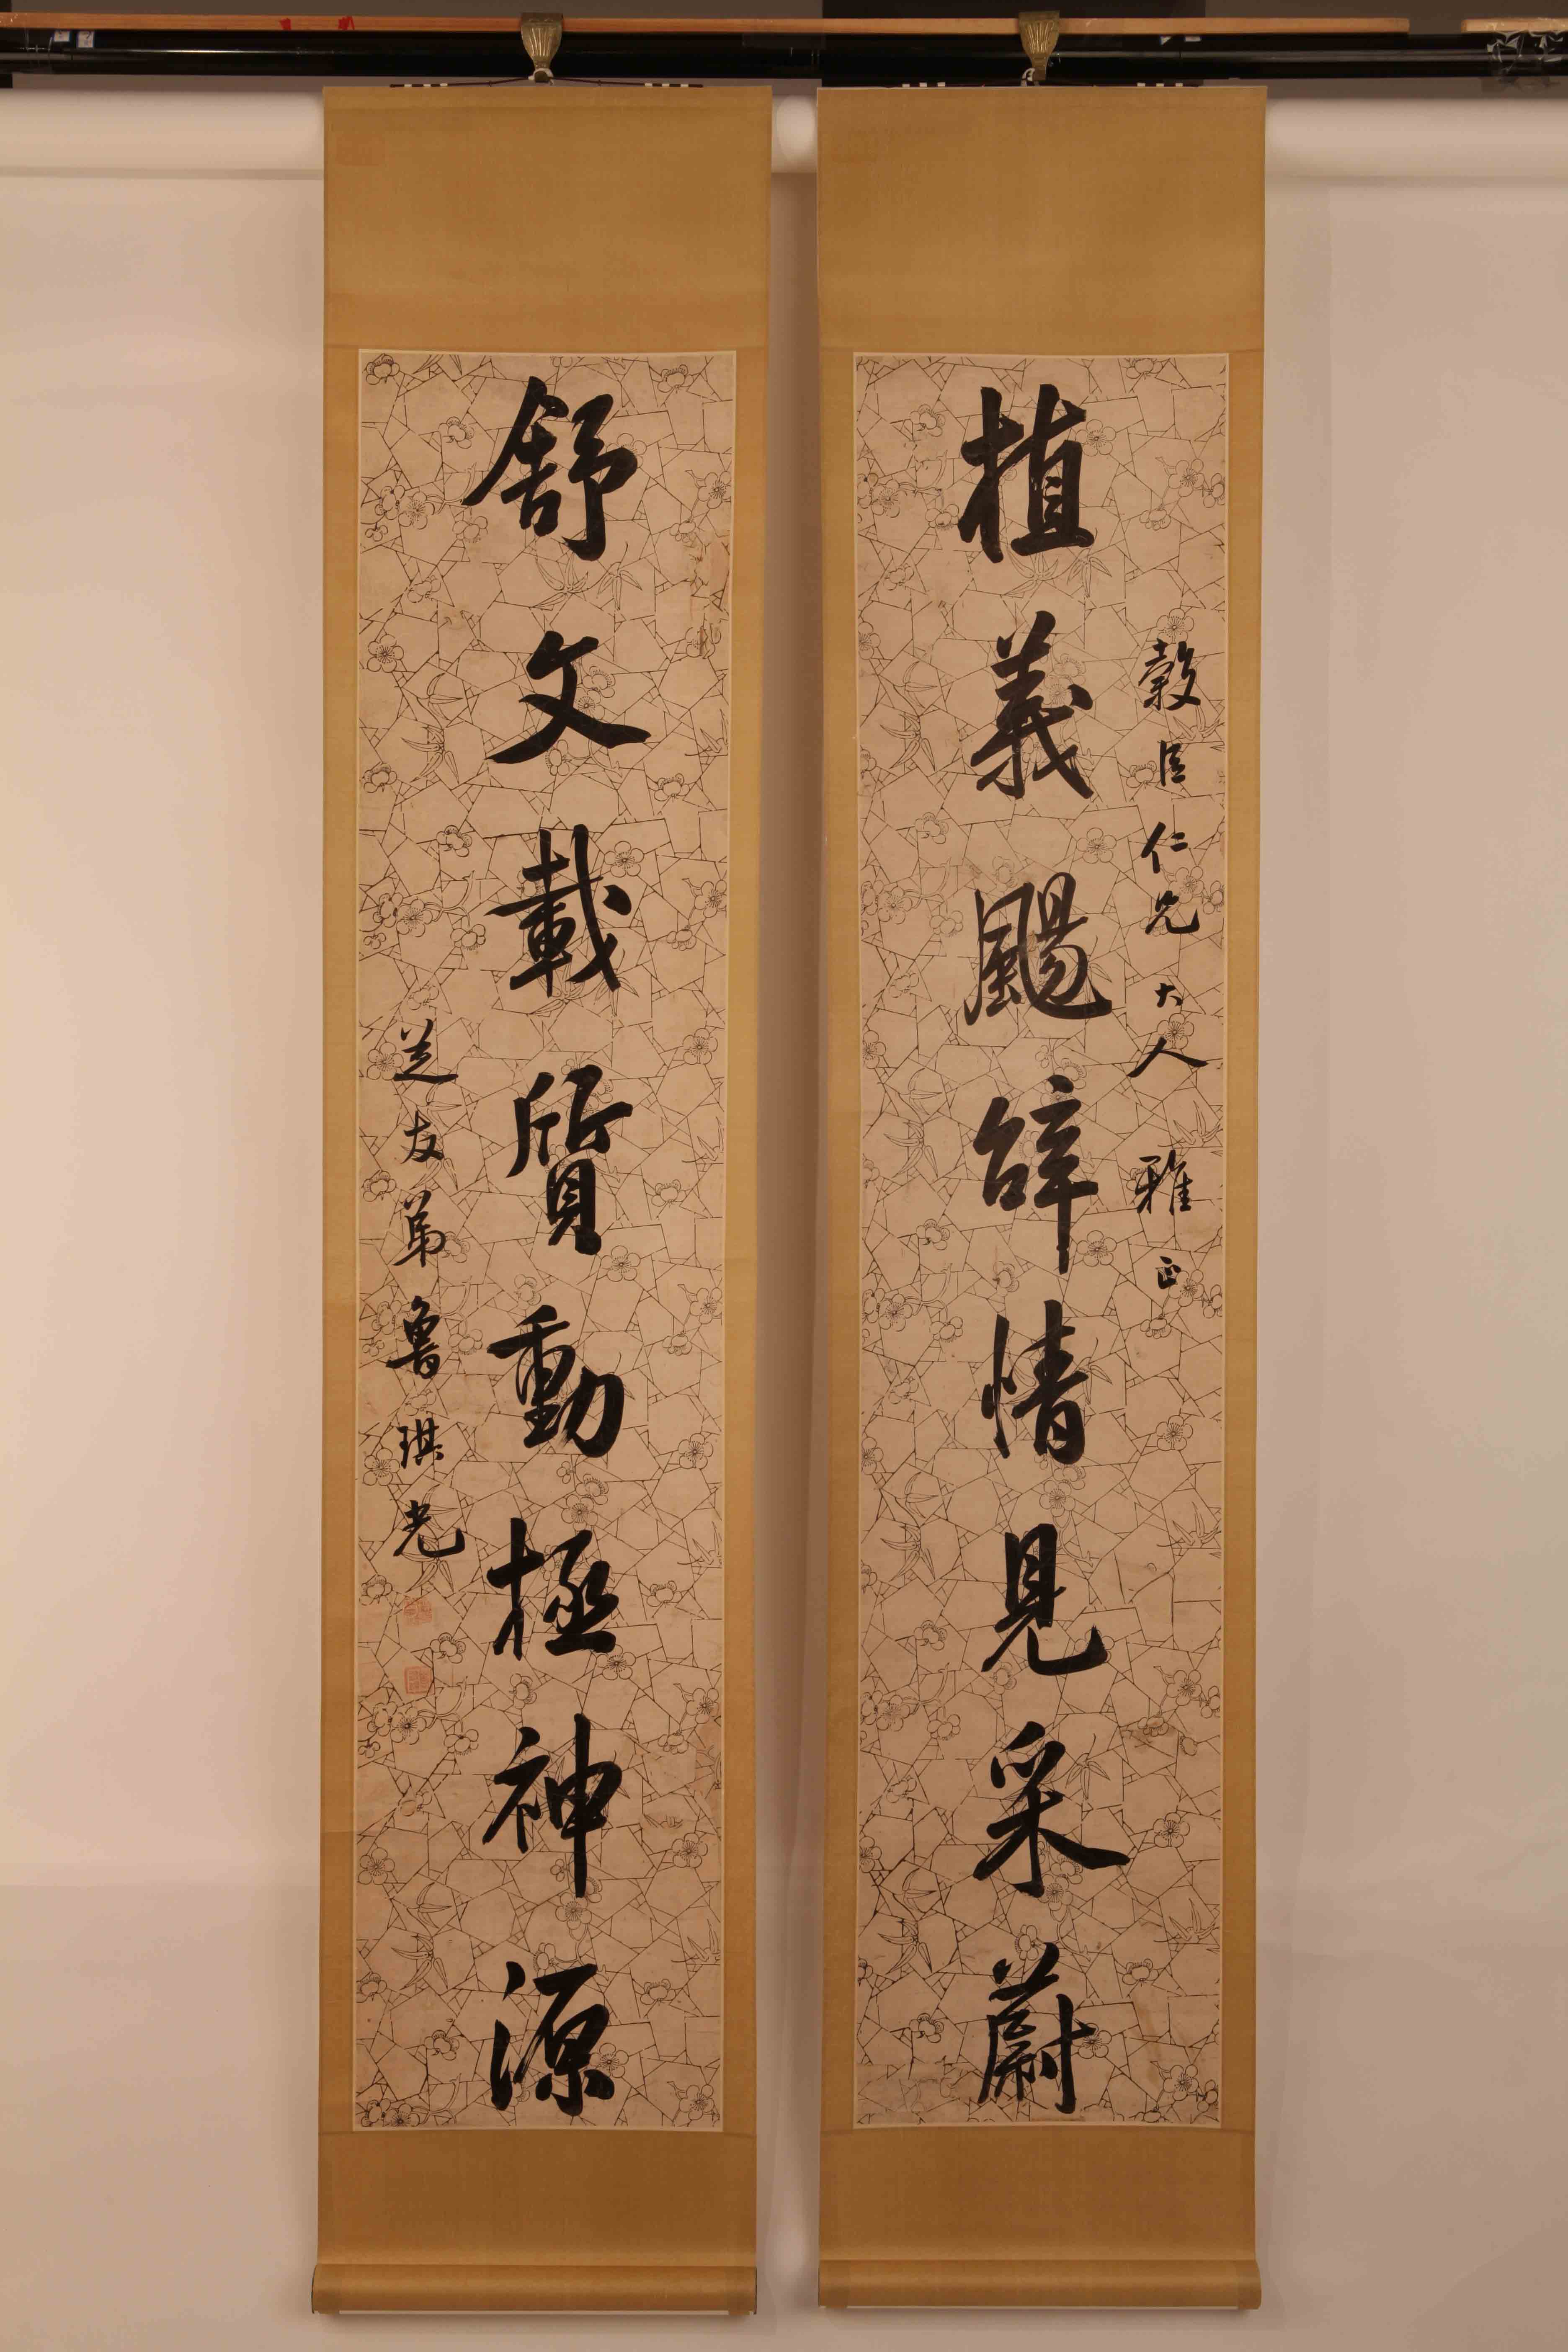 穀臣仁兄大人雅正
植義颺辭情見采蔚
舒文載質動極神源
芝友弟魯琪光